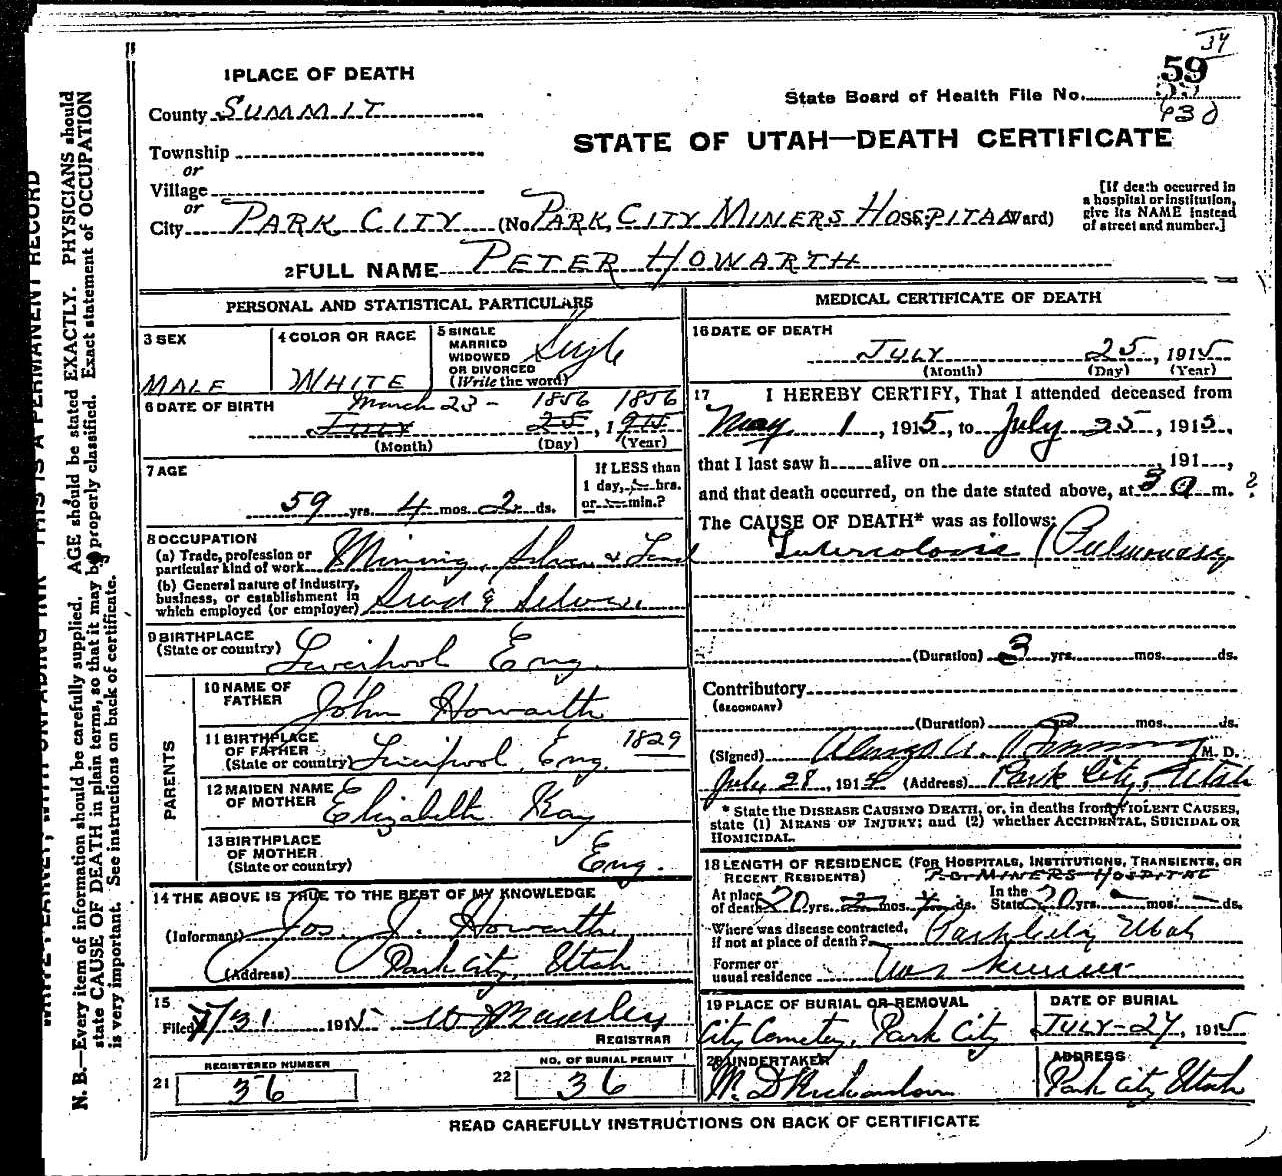 34
59
1 PLACE OF DEATH
State Board of Health File No.
County SUMMIT
630
STATE OF UTAH—DEATH CERTIFICATE
Township
or
Village
or
City PARK CITY (No. PARK CITY MINERS HOSPITAL Ward)
[If death occurred in
a hospital or institution,
give its NAME instead
of street and number.]
2 FULL NAME PETER HOWARTH
PERSONAL AND STATISTICAL PARTICULARS
3 SEX
MALE
4 COLOR OR RACE
WHITE
5 SINGLE
MARRIED
WIDOWED
OR DIVORCED
(Write the word)
Single
6 DATE OF BIRTH
March 23 - 1856 1856
July 25, 1915
(Month) (Day) (Year)
7 AGE
59 yrs. 4 mos. 2 ds.
If LESS than
1 day, hrs.
or min.?
8 OCCUPATION
(a) Trade, profession or
particular kind of work Mining, Silver & Lead
(b) General nature of industry,
business, or establishment in
which employed (or employer) Lead & Silver
9 BIRTHPLACE
(State or country) Liverpool Eng.
PARENTS
10 NAME OF
FATHER John Howarth
11 BIRTHPLACE
OF FATHER
(State or country) Liverpool, Eng. 1829
12 MAIDEN NAME
OF MOTHER Elizabeth Kay
13 BIRTHPLACE
OF MOTHER
(State or country) Eng.
14 THE ABOVE IS TRUE TO THE BEST OF MY KNOWLEDGE
(Informant) Jos. J. Howarth
(Address) Park City, Utah
15
Filed 7/31 1915
REGISTRAR
REGISTERED NUMBER
21 36
NO. OF BURIAL PERMIT
22 36
MEDICAL CERTIFICATE OF DEATH
16 DATE OF DEATH
JULY 25, 1915
(Month) (Day) (Year)
17 I HEREBY CERTIFY, That I attended deceased from
May 1, 1915, to July 25, 1915,
that I last saw h alive on , 191 ,
and that death occurred, on the date stated above, at 3 a m. ?
The CAUSE OF DEATH* was as follows:
Tuberculosis (Pulmonary
(Duration) 3 yrs. mos. ds.
Contributory
(SECONDARY)
(Duration) yrs. mos. ds.
(Signed) M. D.
July 28, 191 (Address) Park City, Utah
* State the DISEASE CAUSING DEATH, or, in deaths from VIOLENT CAUSES,
state (1) MEANS OF INJURY; and (2) whether ACCIDENTAL, SUICIDAL OR
HOMICIDAL.
18 LENGTH OF RESIDENCE (FOR HOSPITALS, INSTITUTIONS, TRANSIENTS, OR
RECENT RESIDENTS) P.C. MINERS HOSPITAL
At place
of death 20 yrs. 2 mos. ds.
In the
State 20 yrs. mos. ds.
Where was disease contracted,
if not at place of death? Park City Utah
Former or
usual residence
19 PLACE OF BURIAL OR REMOVAL
City Cemetery, Park City
DATE OF BURIAL
JULY-27, 1915
20 UNDERTAKER
M. D. Richardson
ADDRESS
Park City Utah
READ CAREFULLY INSTRUCTIONS ON BACK OF CERTIFICATE
THIS IS A PERMANENT RECORD
N. B.—Every item of information should be carefully supplied. AGE should be stated EXACTLY. PHYSICIANS should
state CAUSE OF DEATH in plain terms, so that it may be properly classified. Exact statement of OCCUPATION
is very important. See instructions on back of certificate.